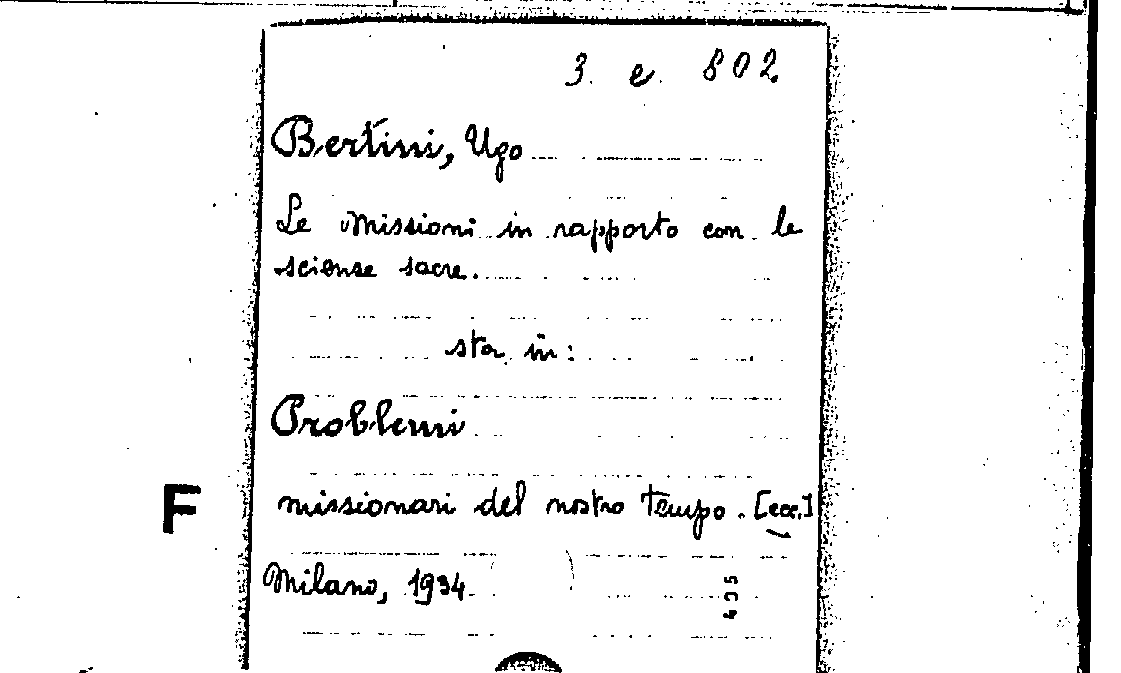 3. e. 802
Bertini, Ugo
Le Missioni in rapporto con le
scienze sacre.
sta in:
Problemi
F
missionari del nostro tempo. [ecc.]
Milano, 1934